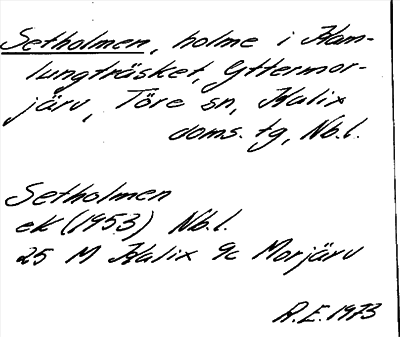 Setholmen, holme i Kam-
lungträsket, Yttermor-
järv, Töre sn, Kalix
doms. tg, Nb.l.
Setholmen
ek (1953) Nb.l.
25 M Kalix 9c Morjärv
R.E. 1973